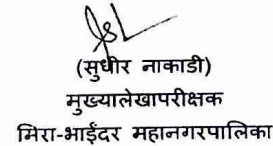 (सुधीर नाकाडी)
मुख्यालेखापरीक्षक
मिरा-भाईंदर महानगरपालिका